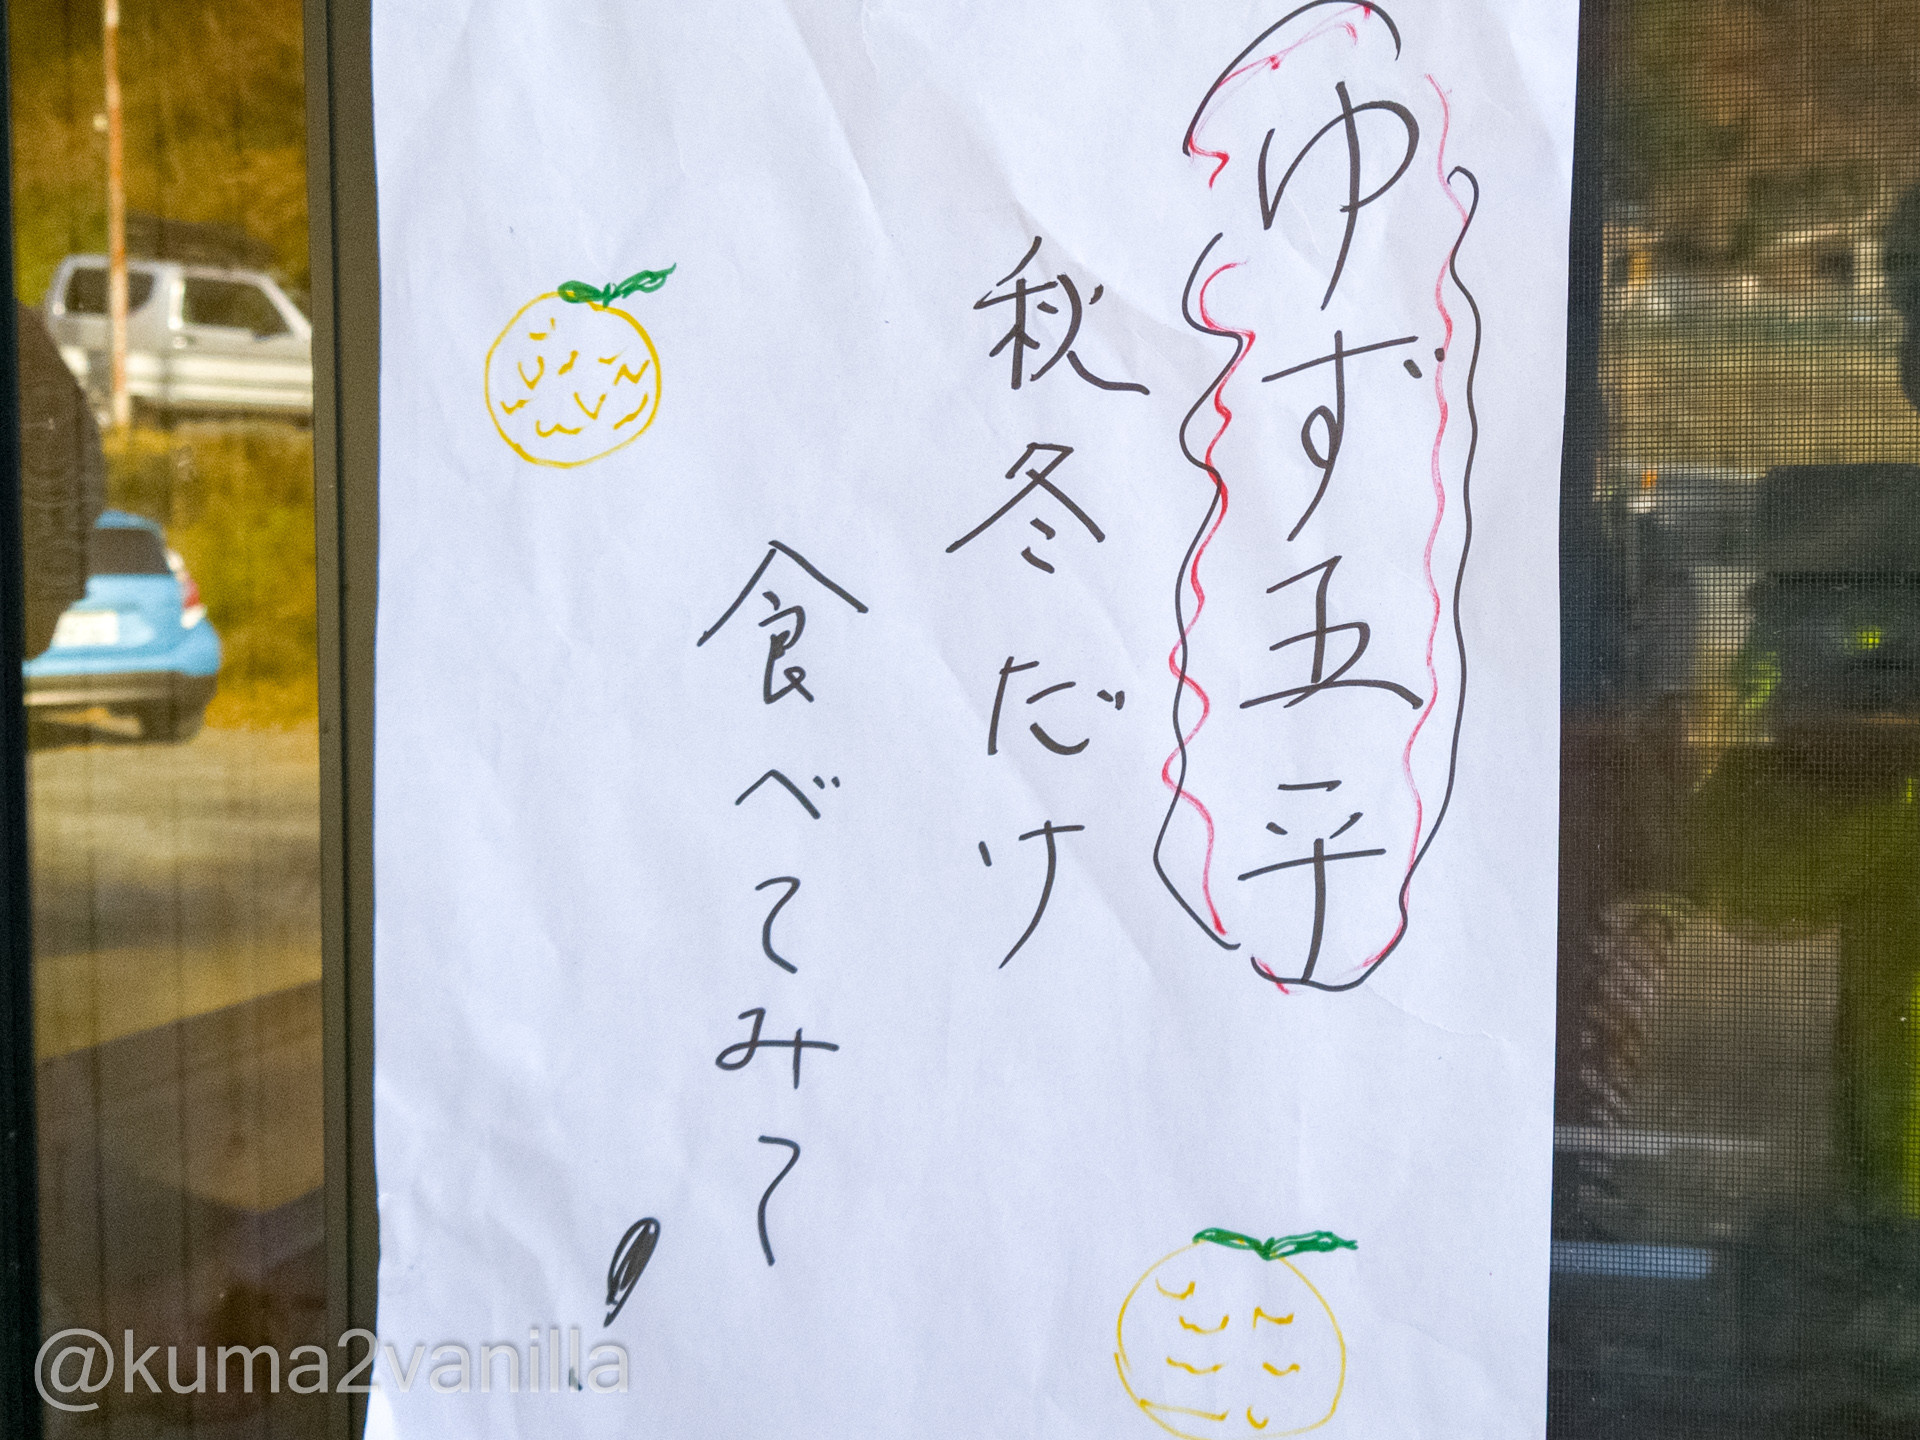 ゆず五平
秋冬だけ
食べてみて!
@kuma2vanilla